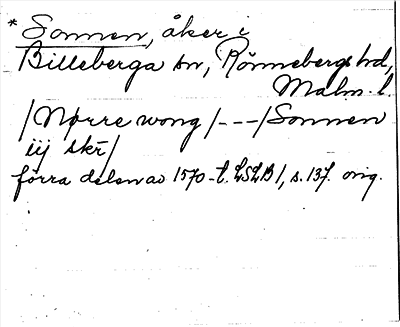 * Sonnen, åker i
Billeberga sn, Rönnebergs hd,
Malm. l.
/Nørre wong/---/Sonnen
iij skr̄/
förra delen av 1570-t. LSLB 1, s. 137. orig.